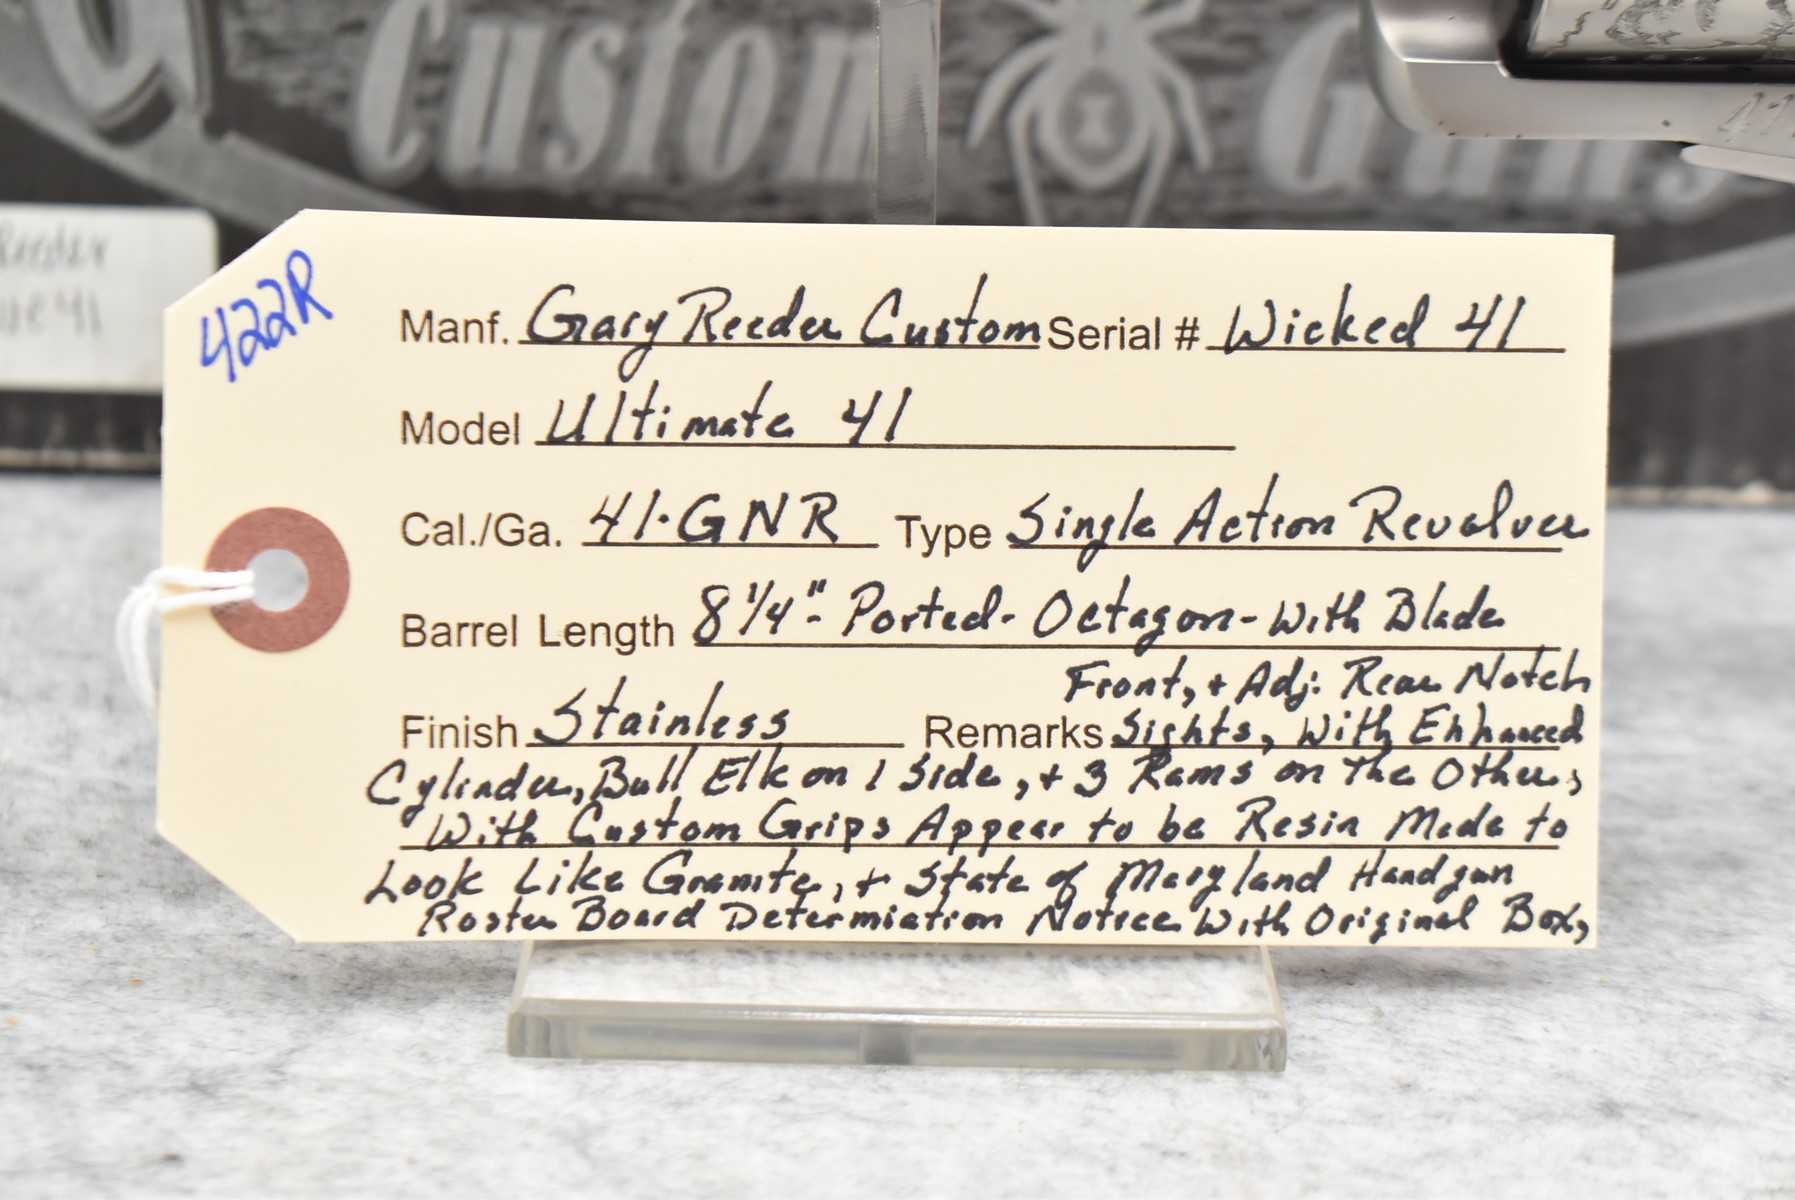 Custom Guns
Reeder
41
41
422R
Manf. Gary Reeder Custom Serial # Wicked 41
Model Ultimate 41
Cal./Ga. 41·GNR Type Single Action Revolver
Barrel Length 8 1/4"- Ported- Octagon- With Blade
Front, + Adj. Rear Notch
Finish Stainless Remarks Sights, With Enhanced
Cylinder, Bull Elk on 1 Side, + 3 Rams on The Other,
With Custom Grips Appear to be Resin Made to
Look Like Granite, + State of Maryland Handgun
Roster Board Determiation Notice With Original Box,